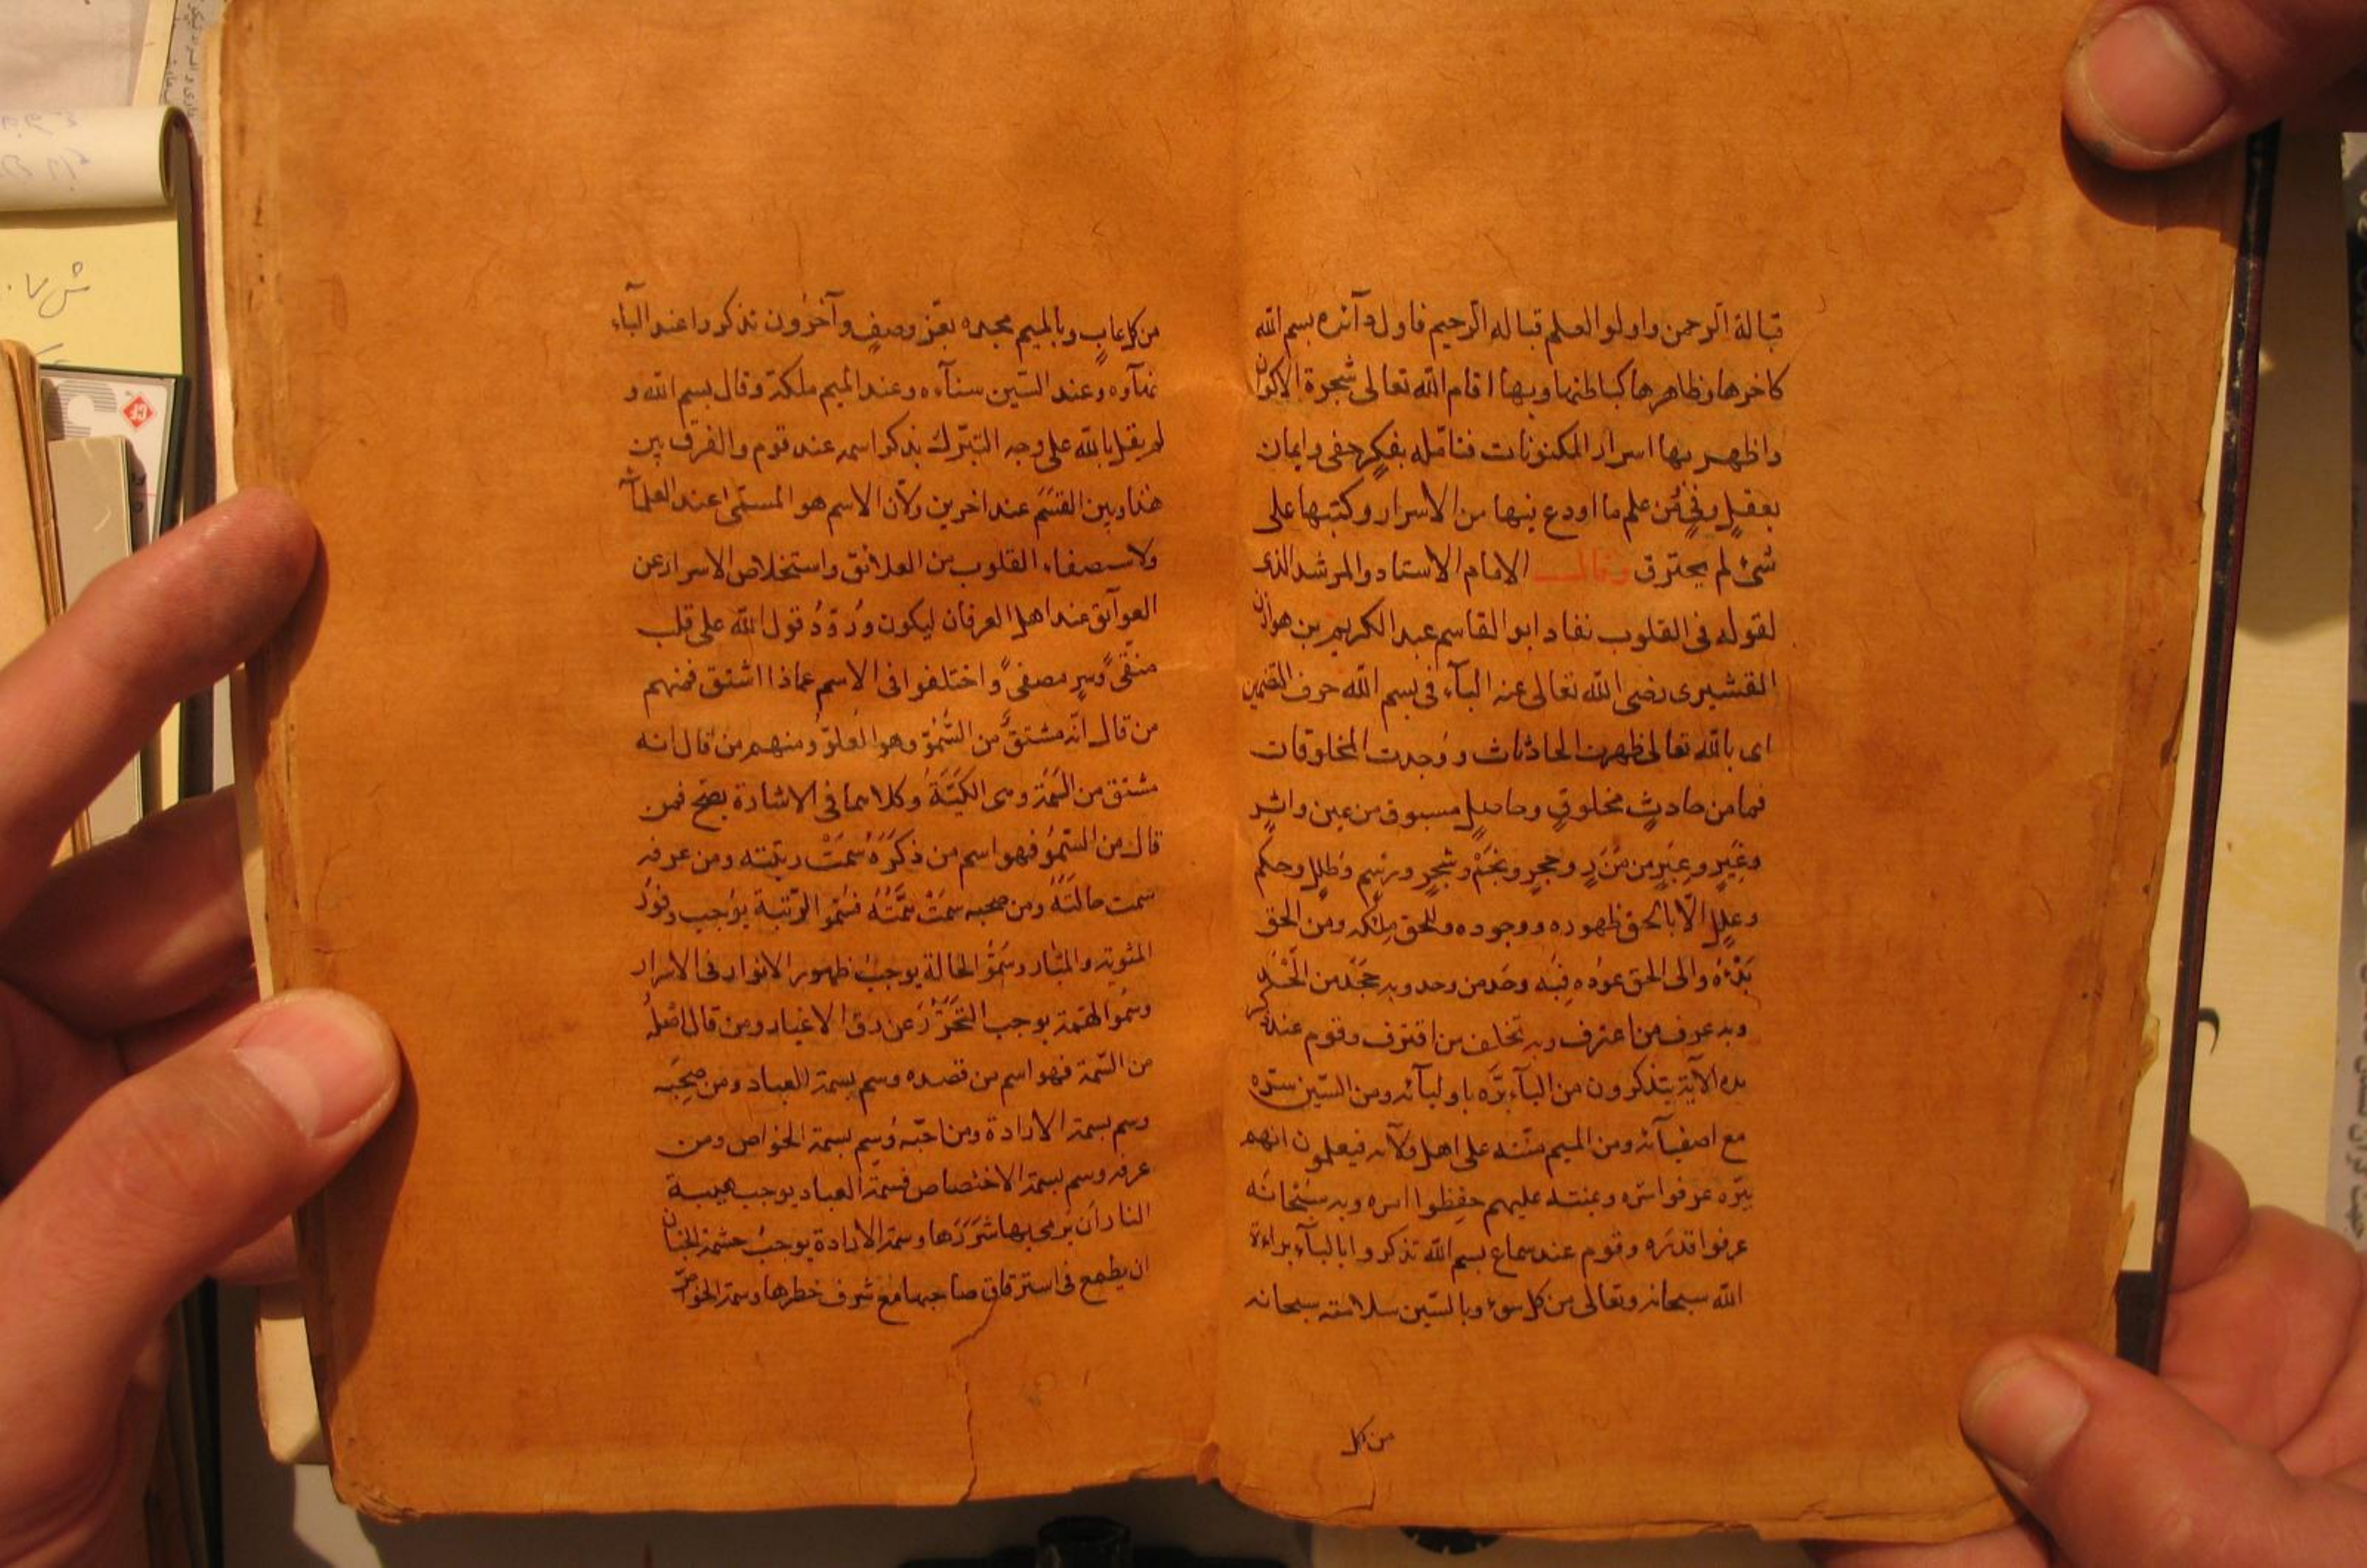 قبالة الرحمن واولوا العلم قباله الرحيم فاول دآئره بسم الله
كاخرها وظاهرها كباطنها وبها اقام الله تعالى شجرة الاكوان
واظهر بها اسرار المكنونات فتامّله بفكرٍ خفى وايمان
بعقلٍ وفىٍ فمن علم ما اودع فيها من الاسرار وكتبها على
شئ لم يحترق وقال الامام الاستاد والمرشد الذى
لقوله فى القلوب نفاد ابو القاسم عبد الكريم بن هوازن
القشيرى رضى الله تعالى عنه البآء فى بسم الله حرف التضمين
اى بالله تعالى ظهرت الحادثاث ووُجدت المخلوقات
فما من حادثٍ مخلوقٍ وحاصلٍ مسبوق من عين واثرٍ
وغَيرٍ وعِبَرٍ من مَدَرٍ وحجرٍ ونَجَمٍ وشجرٍ ورسٍم وطَللٍ وحكم
وعللٍ الّا بالحق ظهوره ووجوده وللحق مِلكه ومن الحق
بَدْءُه والى الحق عودُه فبِه وحّد من وحد وبه جَحَد من الْحَد
وبه عرف من اعترف وبه تخلف من اقترف وقوم عند ذكر
هذه الآية يتذكرون من البآء برَّه باوليآئه ومن السّين سرّه
مع اصفيآئه ومن الميم منّته على اهل ولآئه فيعلمون انهم
ببرّه عرفوا سرّه وبمنته عليهم حفِظوا امره وبه سبْحانَه
عرفوا قدَره وقوم عند سماع بسم الله تذكروا بالبآء براءة
الله سبحانه وتعالى من كل سوء وبالسّين سلامته سبحانه
من كل
من كل عابٍ وبالميم مجده بعزّ وصفٍ وآخرون تذكروا عند البآء
بهآؤه وعند السّين سنآءه وعند الميم ملكه وقال بسم الله و
لم يقل بالله على وجه التبّرك بذكر اسمه عند قوم والفرق بين
هذا وبين القسَم عند اخرين ولان الاسم هو المسمّى عند العلمآء
ولاستصفاء القلوب من العلائق واستخلاص الاسرار عن
العوآئق عند اهل العرفان ليكون وُرُودُ قول الله على قلب
منقّىً وسرٍ مصفىً واختلفوا فى الاسم عماذا اشتق فمنهم
من قال انّه مشتقٌّ من السُّمُوّ وهو العلوّ ومنهم من قال انه
مشتق من السِّمَة وهى الكَيَّةُ وكلاهما فى الاشارة يصحّ فمن
قال من السّمُوّ فهو اسم من ذَكَرَهُ سَمَتْ رتبته ومن عرفه
سمت حالتَهُ ومن صحبه سمَتْ هِمَّتُهُ فسُمُو الرّتبة يوجب وفور
المثوبة والمبّار وسُمُوُ الحالة يوجب ظهور الانوار فى الاسرار
وسُمُو الهِمّة يوجب التَحَرُّرَ عن رق الاغيار ومن قال اصْلُه
من السّمة فهو اسم من قصده وسم بسمة العباد ومن صحِبَه
وسم بسمة الارادة ومن احبّه وُسِم بسمة الخواص ومن
عرفه وسم بسمة الاختصاص فسمة العباد يوجب هيبة
النار اَن يُرمى بها شَرَرَها وسمة الارادة يوجبُ حشمة الجنان
ان يطمع فى استرقاق صاحبها مع شرف خطرها وسمة الخواصّ